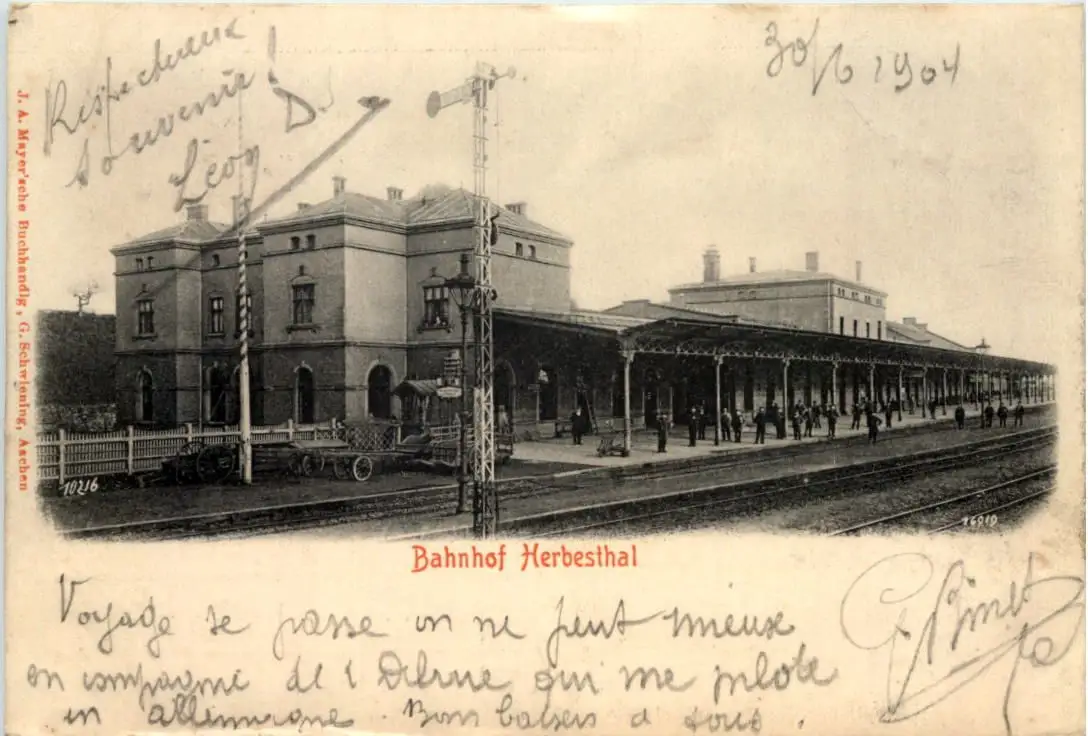 Respectueux
souvenir !
Léon D.
30/6 1904
J. A. Mayer'sche Buchhandlg, G. Schwiening, Aachen
10216
16019
Bahnhof Herbesthal
Voyage se passe on ne peut mieux
en compagnie de qui me pilote
en allemagne. Bons baisers à tous.